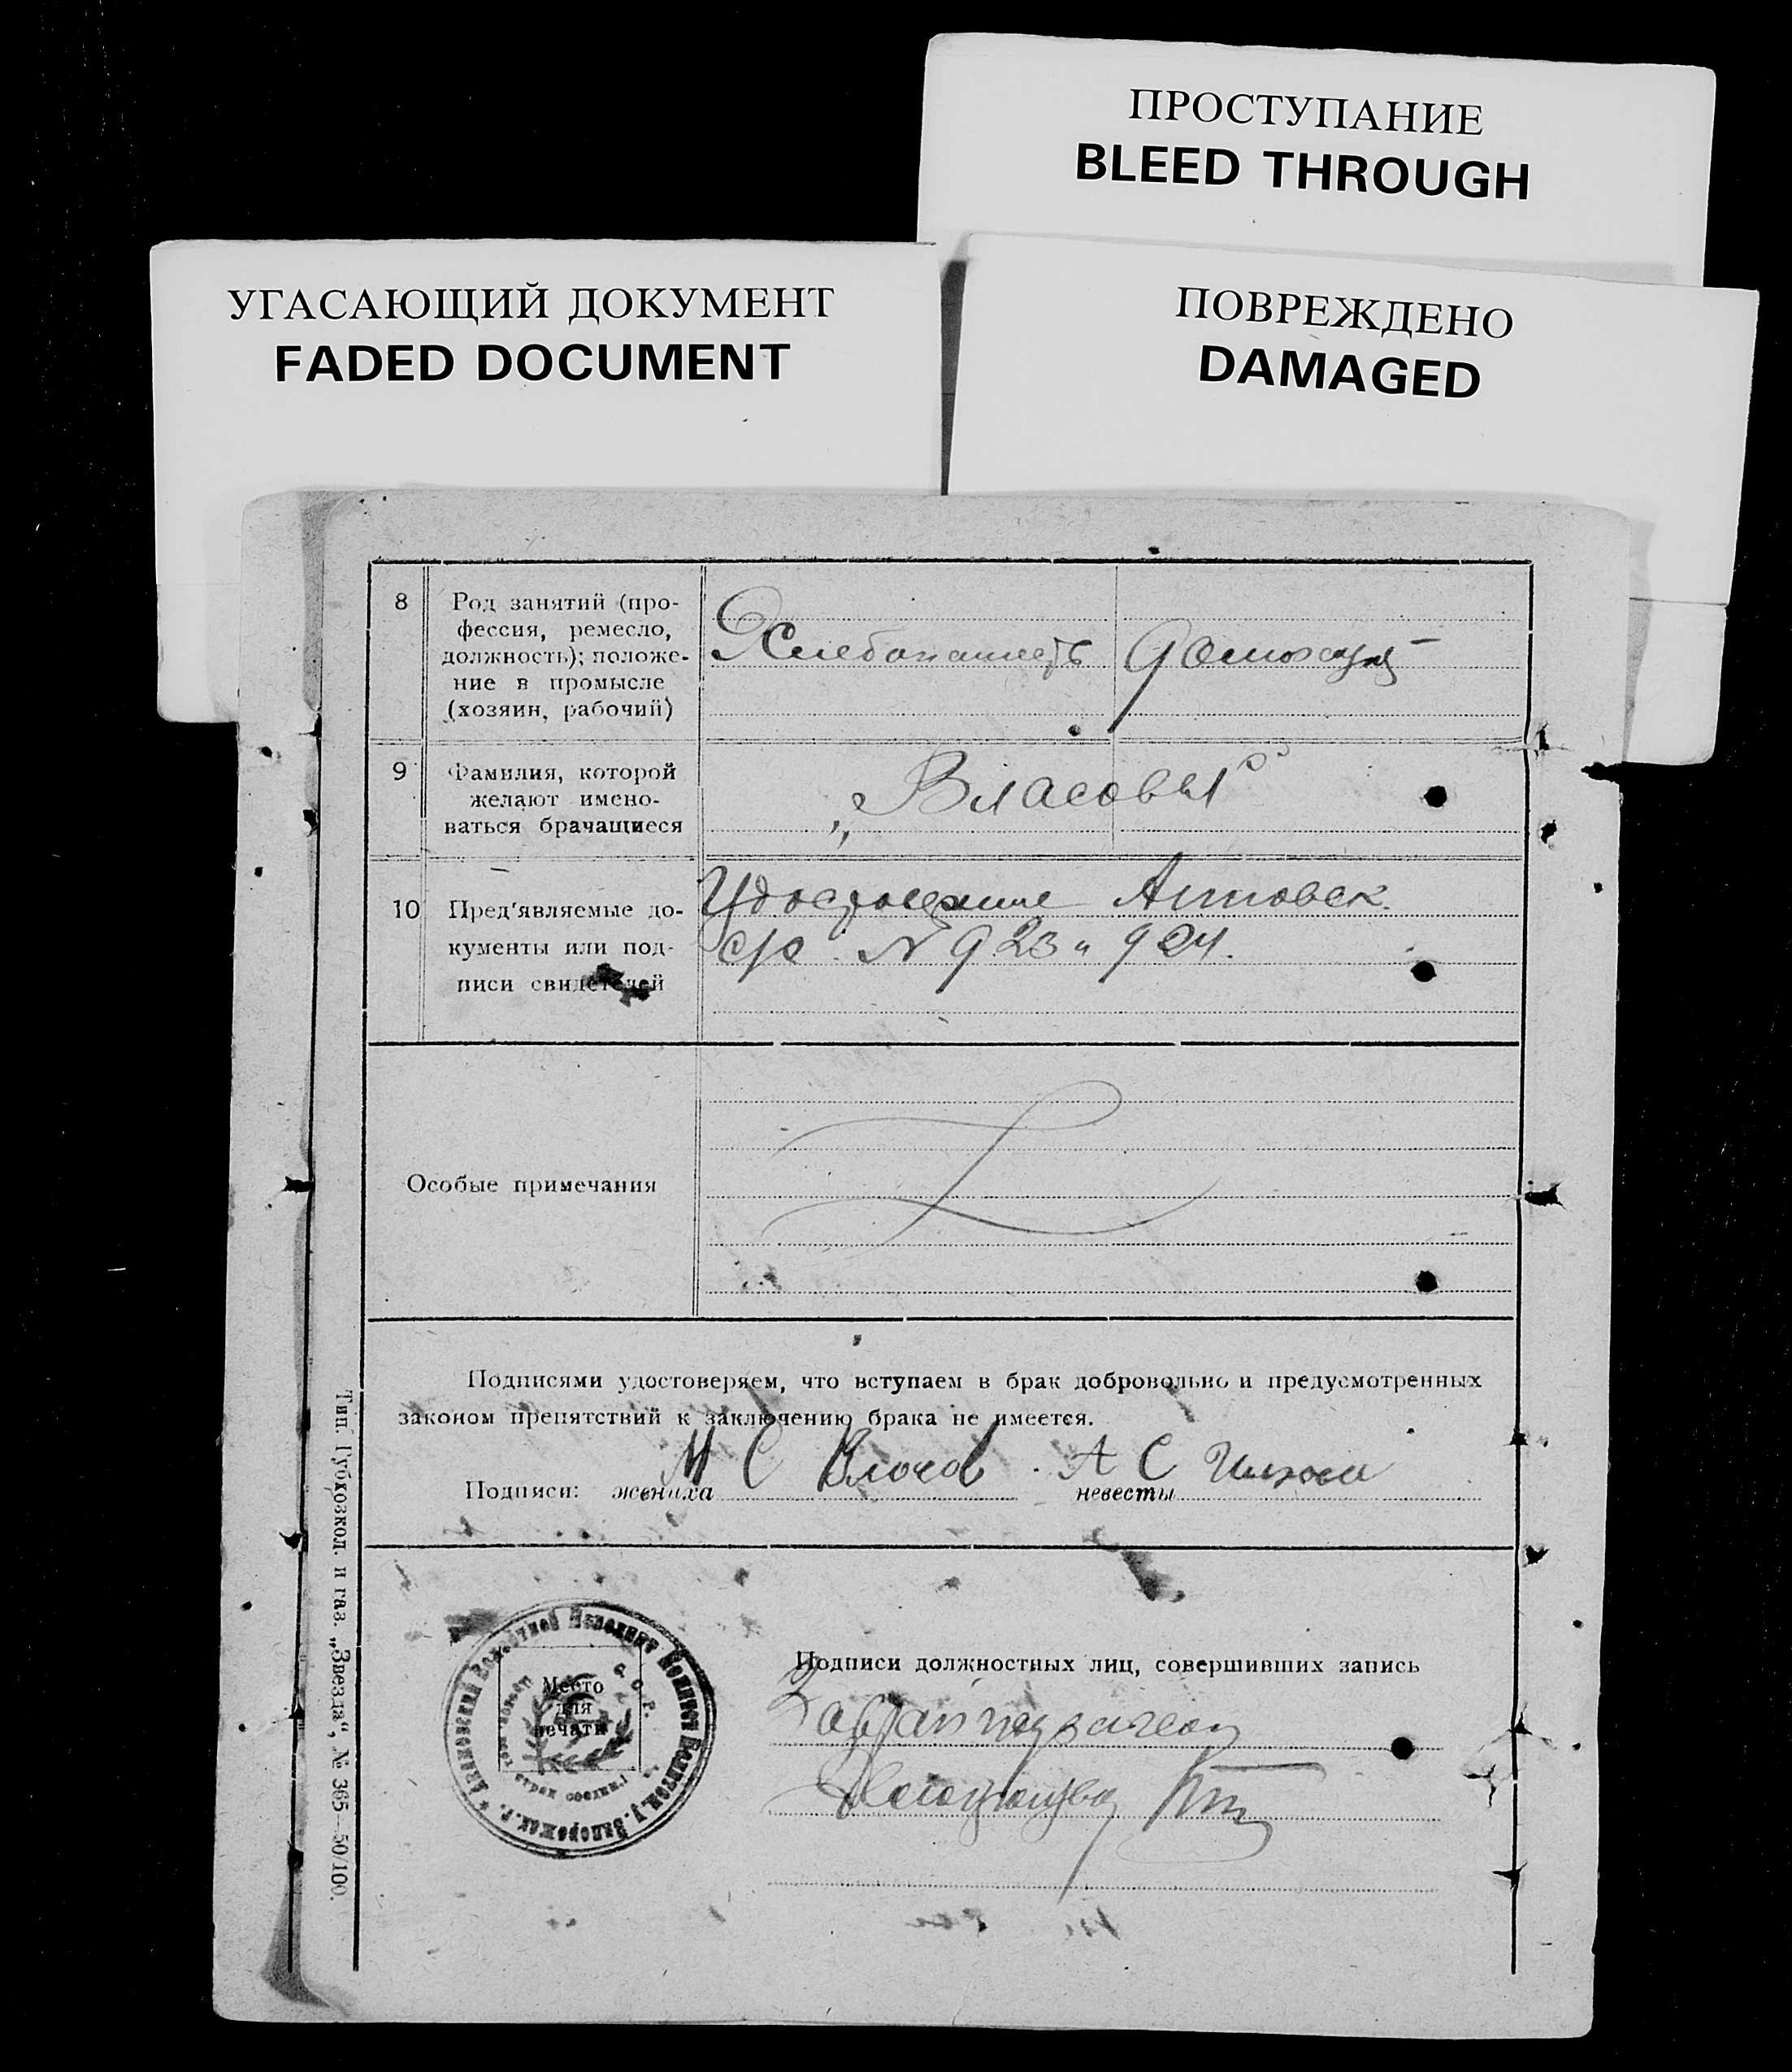 ПРОСТУПАНИЕ
BLEED THROUGH
УГАСАЮЩИЙ ДОКУМЕНТ
FADED DOCUMENT
ПОВРЕЖДЕНО
DAMAGED
8
Род занятий (про-
фессия, ремесло,
должность); положе-
ние в промысле
(хозяин, рабочий)
Хлебопашець
Домохоз.
9
Фамилия, которой
желают имено-
ваться брачащиеся
„Власовы“
10
Пред'являемые до-
кументы или под-
писи свидетелей
Удостоверение Анновск.
с/с. N 923 и 924.
Особые примечания
Подписями удостоверяем, что вступаем в брак добровольно и предусмотренных
законом препятствий к заключению брака не имеется.
Подписи: жениха М С Власов невесты А С
Место
для
печати
Подписи должностных лиц, совершивших запись
Тип. Губкозкол. и газ. „Звезда“, № 365—50/100.